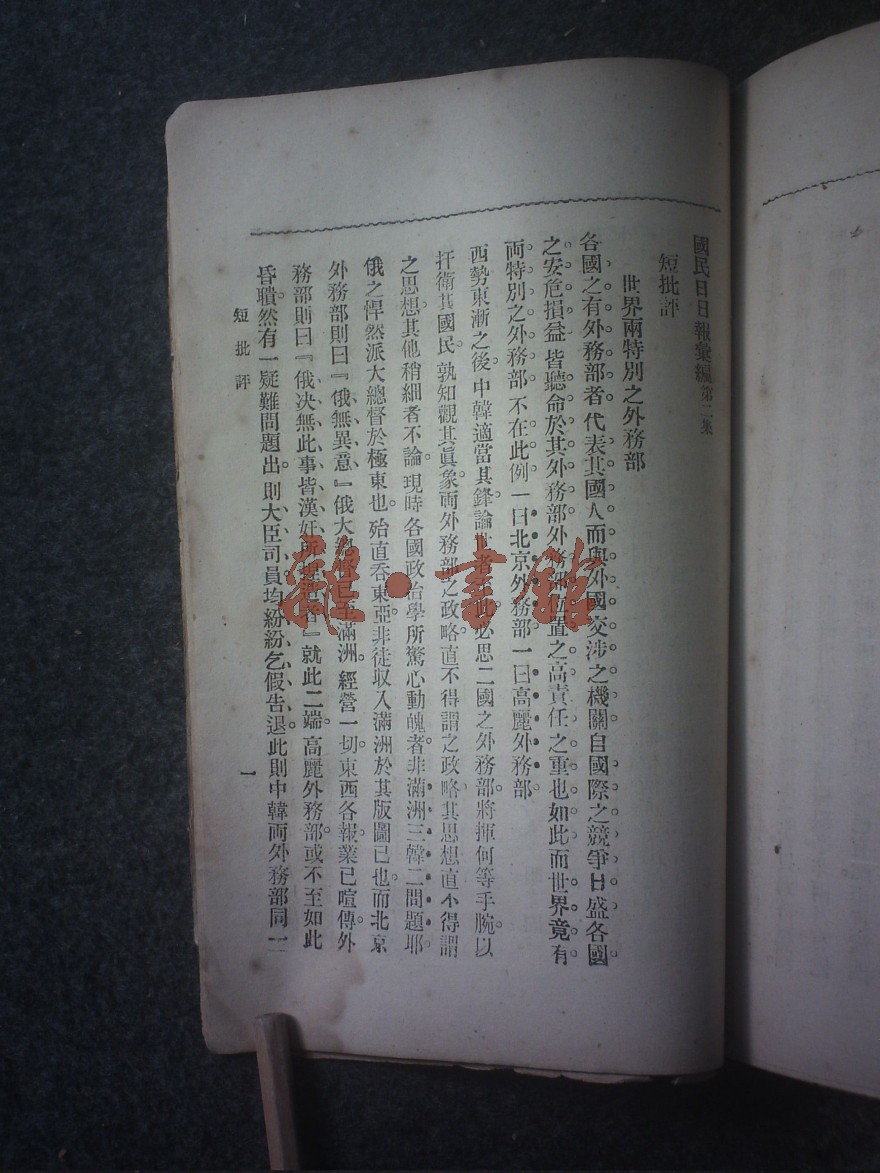 國民日日報彙編第二集
短批評
世界兩特別之外務部
各國之有外務部者代表其國人而與外國交涉之機關自國際之競爭日盛各國
之安危損益皆聽命於其外務部外務部位置之高責任之重也如此而世界竟有
兩特別之外務部不在此例一曰北京外務部一曰高麗外務部
西勢東漸之後中韓適當其鋒論世者必思二國之外務部將揮何等手腕以
扞衛其國民孰知觀其眞象兩外務部之政略直不得謂之政略其思想直不得謂
之思想其他稍細者不論現時各國政治學所驚心動魄者非滿洲三韓二問題耶
俄之悍然派大總督於極東也殆直吞東亞非徒収入滿洲於其版圖已也而北京
外務部則曰『俄無異意』俄大已至滿洲經營一切東西各報業已喧傳外
務部則曰『俄決無此事皆漢奸所』就此二端高麗外務部或不至如此
昏聵然有一疑難問題出則大臣司員均紛紛乞假告退此則中韓兩外務部同一
短批評
一
雜·書館